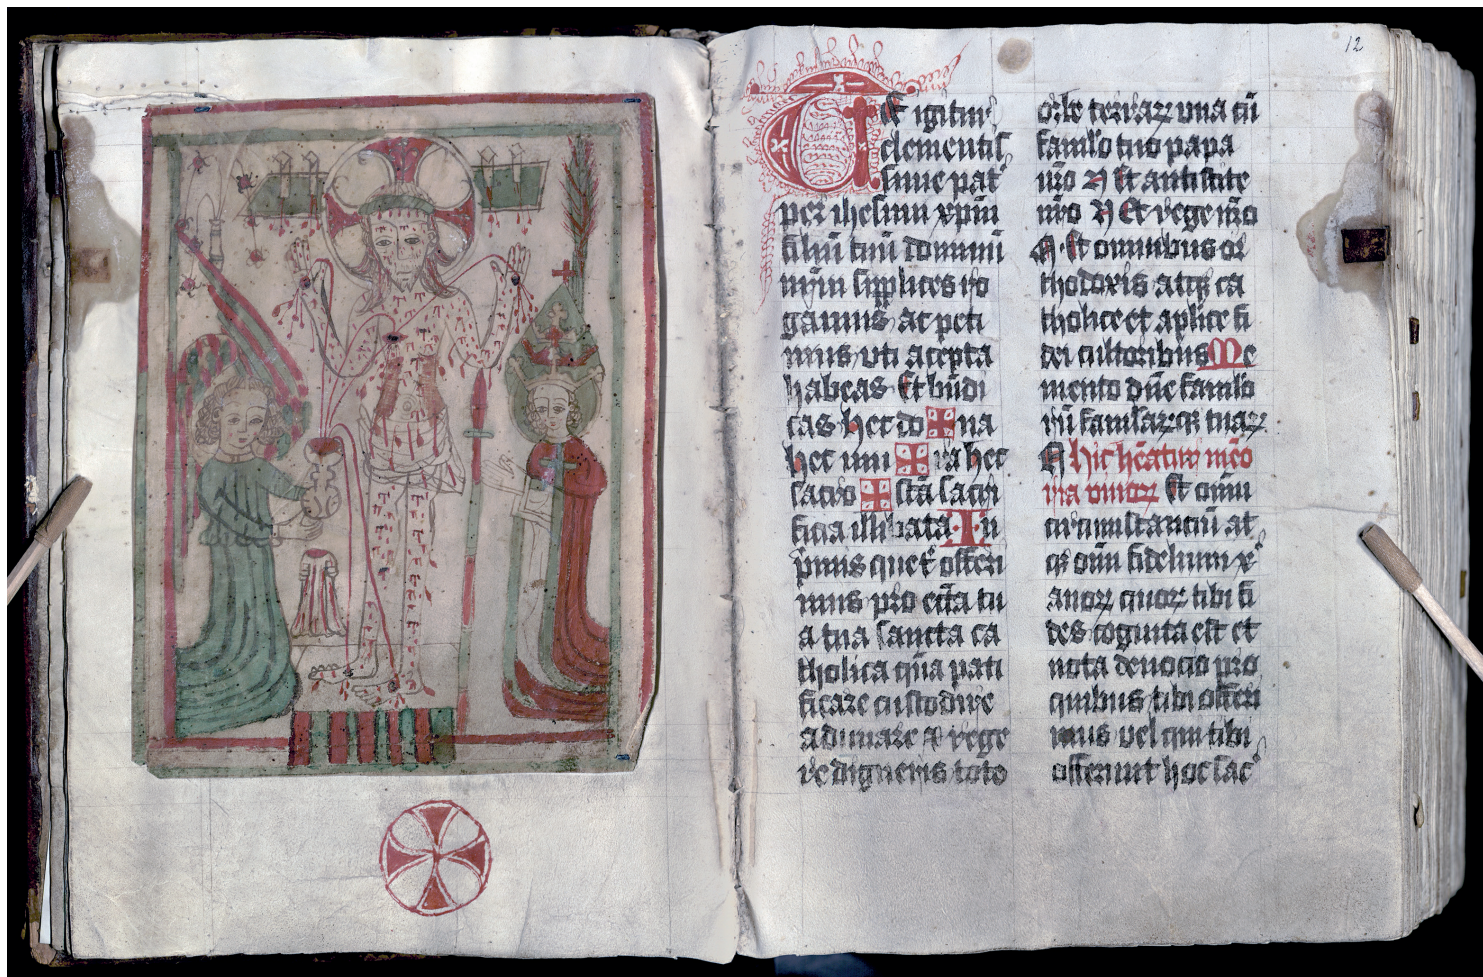 12
TE igitur
clementis
sime pat̄
per ihesum xp̄m
filiū tuū dominū
nr̄m supplices ro
gamus ac peti
mus vti accepta
habeas Et bn̄di
cas hec do✠na
hec mu✠n̄a hec
sacro✠sc̄ta sacri
ficia illibata In
p̄mis que t̄ offeri
mus pro ecc̄ia tu
a tua sancta ca
tholica qm̄a pati
ficare custodire
adunare et rege
re digneris toto
orbe terraꝝ vna cū
famlo tuo papa
nr̄o N Et antistite
nr̄o N Et rege nr̄o
N Et omnibus or
thodoxis atqꝫ ca
tholice et aplice fi
dei cultoribus Me
mento dn̄e famlo
rū famlaꝝqꝫ tuaꝝ
N hic hēatur mēo
ria viuoꝝ Et omi
circumstanciū at
qꝫ om̄i fidelium xp̄i
anoꝝ quoꝝ tibi fi
des cognita est et
nota deuocio pro
quibus tibi offeri
mus vel qui tibi
offerunt hoc sac